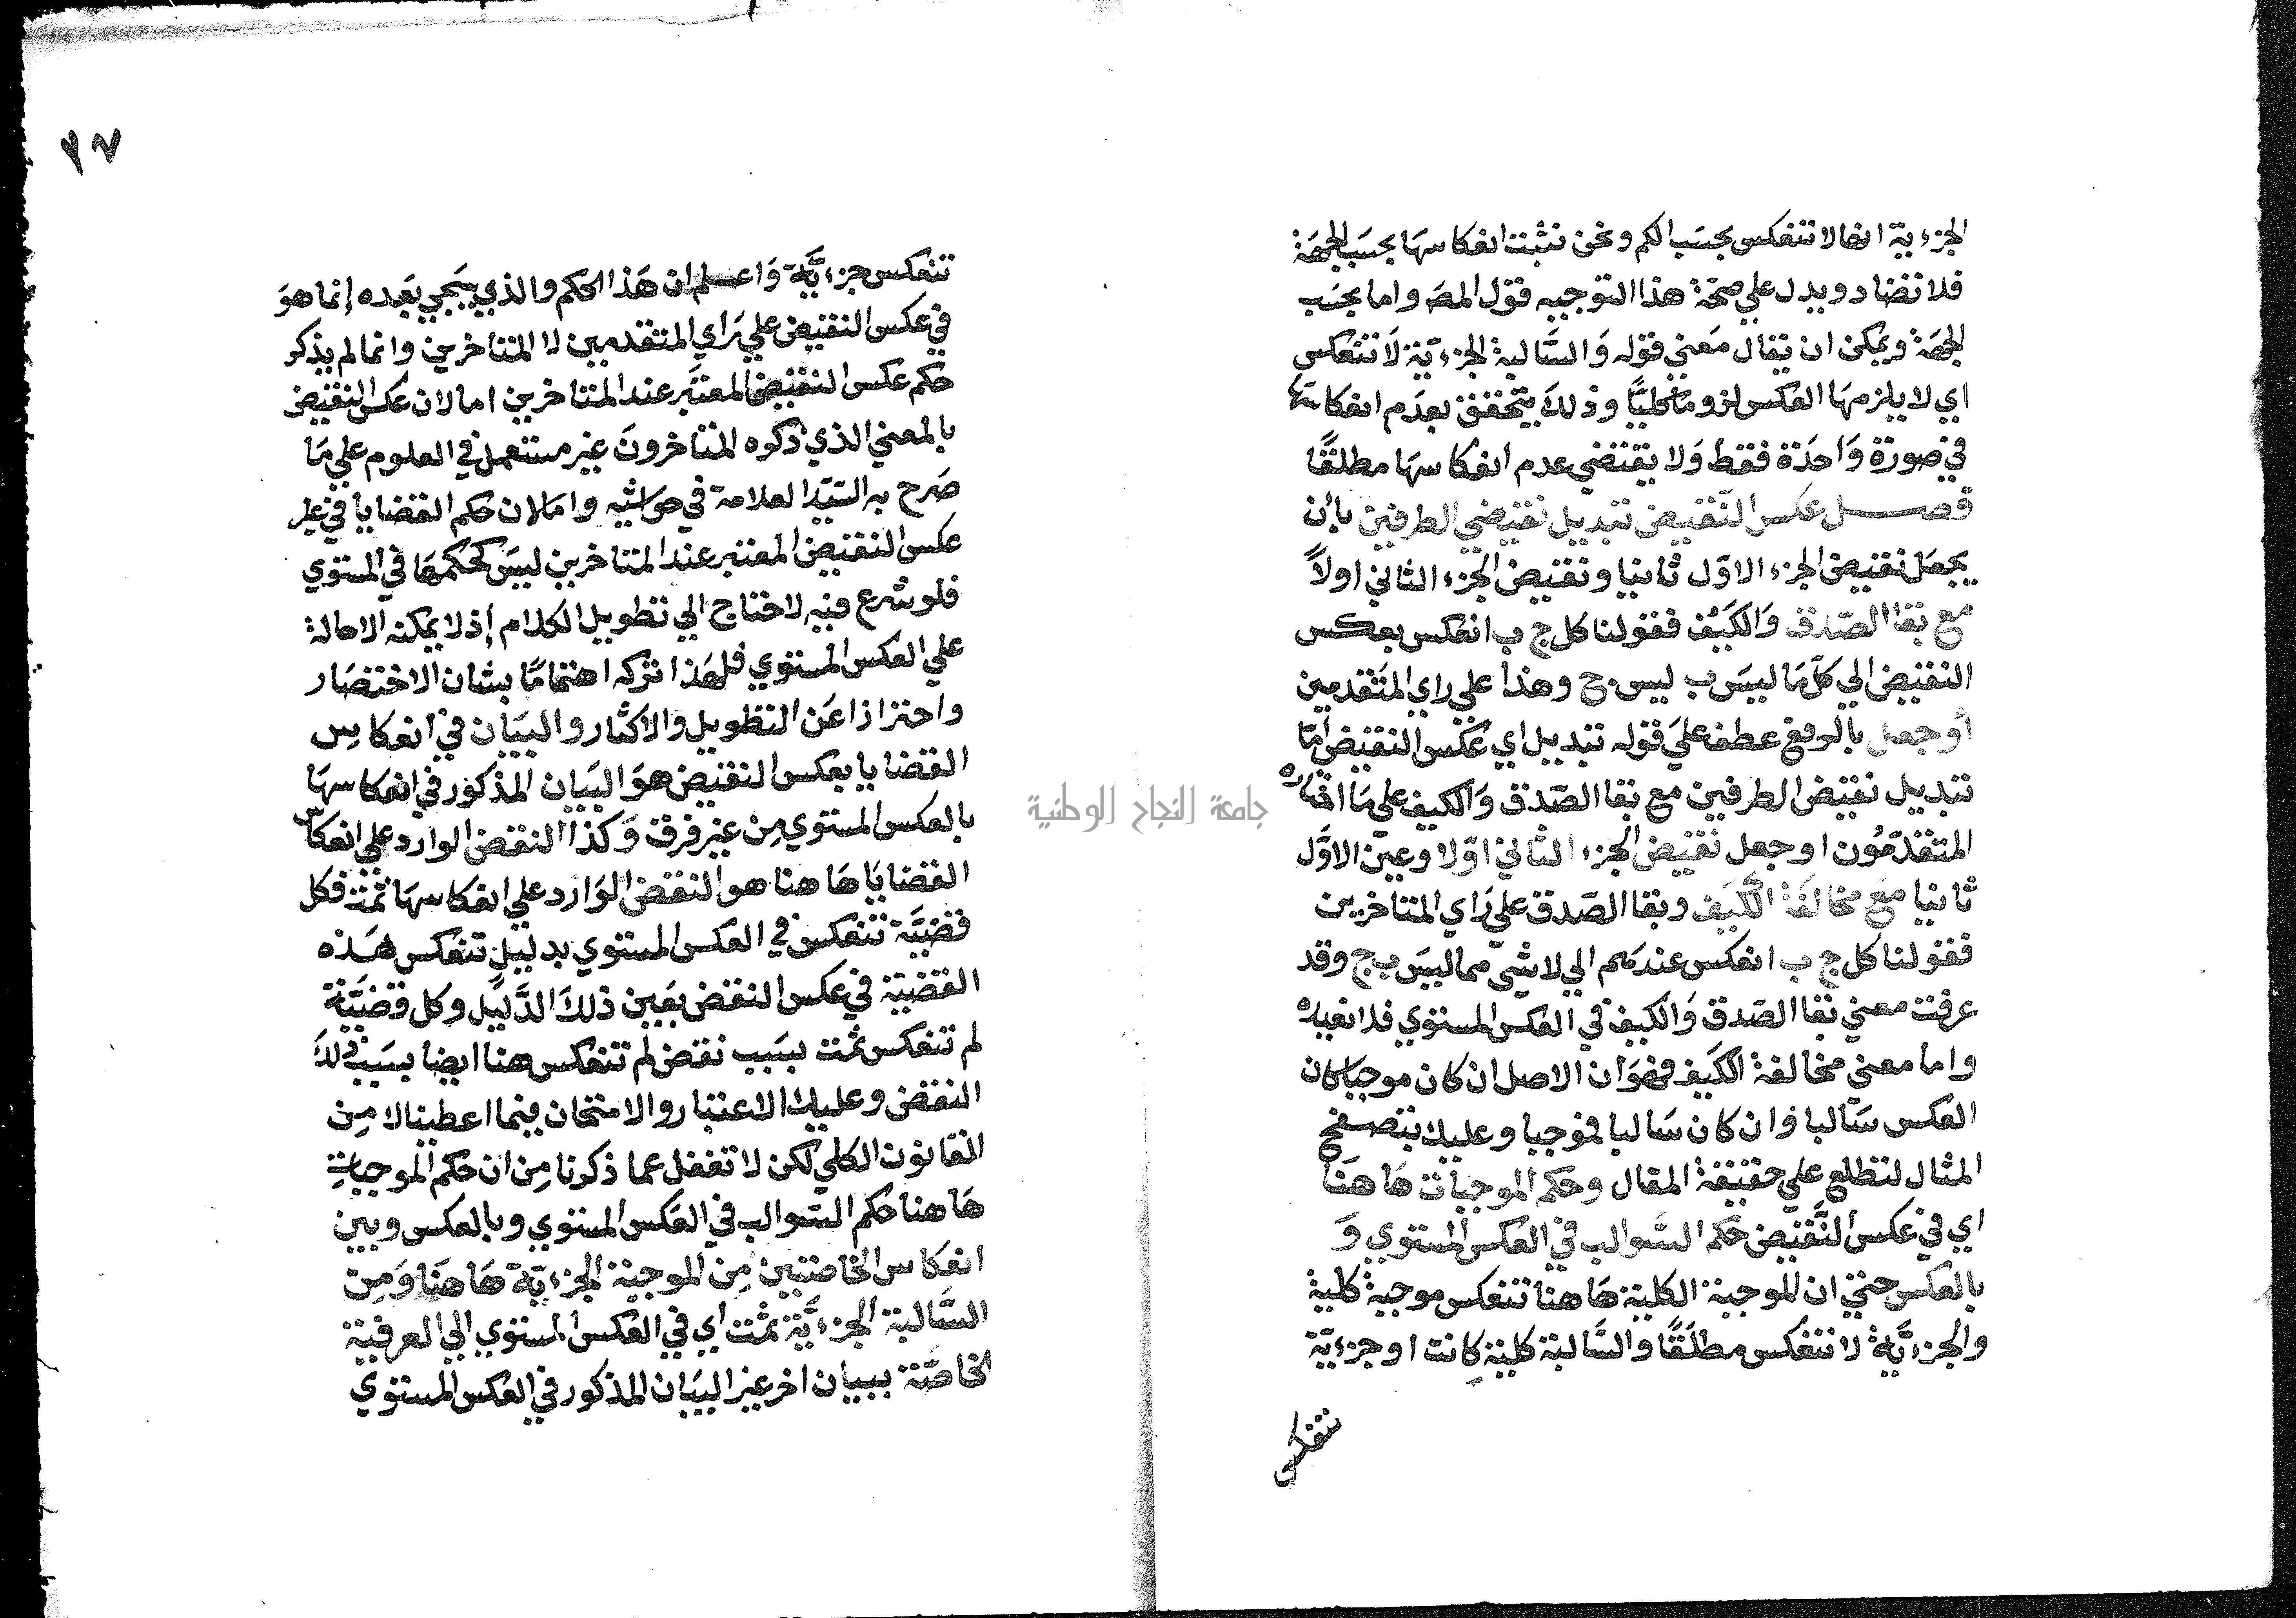 الجزءية انها لا تنعكس بحسَب الكم ونحن نثبت انعكاسهَا بحسَب الجهَة
فلا تضاد ويدل علي صحّة هذا التوجيه قول المصَ واما بحسَب
الجهَة ويمكن ان يقال مَعني قوله وَالسَّالبة الجزءيّة لَا تنعكس
اي لا يلزمهَا العكس لزومًا كليًّا وذلكَ يتحقق بعدَم انعكاسهَا
في صورَة وَاحدَة فقط وَلا يقتضي عدم انعكاسهَا مطلقًا
فصــل عكس النّقيض تبديل نقيضي الطرفين بأن
يجعَل نقيض الجزء الاوّل ثانيا ونقيض الجزء الثاني اولاً
مع بقا الصّدق وَالكَيْف فقولنا كل ج ب انعكس بعكس
النقيض الي كلّ مَا ليسَ ب ليس ج وهذا علي راي المتَقدمين
أو جعل بالرفع عطف علَي قوله تبديل اي عَكس النقيض امّا
تبديل نقيض الطرفين مع بقا الصّدق وَالكيف علي مَا اختاره
المتقدّمُون او جعل نقيض الجزء الثاني اوّلا وعين الاوَّل
ثانيا مَع مخالفَة الكَيف وبقا الصّدق علي رَاي المتاخرين
فقولنا كل ج ب انعكس عندَهم الي لا شي مما ليسَ ب ج وقد
عرفت معني بقا الصّدق وَالكيف في العكس المستوي فلا نعيده
واما معني مخالفة الكَيف فهوَ ان الاصل ان كان موجبا كان
العكس سَالبا وان كان سَالبا فموجبا وعليك بتصفح
المثال لتطلع علي حقيقة المقال وحكم الموجبات هَا هنَا
اي في عكس النَّقيض حكم السَّوالب في العكس المستوي وَ
بالعكس حتي ان الموجبة الكلية هَا هنا تنعكس موجبة كلية
والجزءيَّة لا تنعكس مطلَقًا والسَّالبة كلية كانت او جزءيّة
تنعكس
جامعة النجاح الوطنية
٢٧
تنعكس جزءيَّة وَاعــلم ان هَذا الحكم والذي يَجي بَعده إنما هوَ
في عكس النقيض علي رَاي المتقدمين لا المتاخرين وانما لم يذكر
حكم عكس النقيض المعتبَر عند المتاخرين اما لان عكس النقيض
بالمعني الذي ذكره المتاخرونَ غير مستعمل في العلوم علي مَا
صَرح به السَّيّد العلامة في حواشيه وامَا لان حكم القضايا في غير
عكس النقيض المعتبر عند المتاخرين ليسَ كحكمهَا في المستوي
فلو شرع فيه لاحتاج الي تطويل الكلام إذ لا يمكنه الاحالة
علي العكس المستوي فلهَذا تركه اهتمامًا بشان الاختصَار
واحترازا عَن التطويل والاكثار والبيَان في انعكاس
القضايا بعكس النقيض هوَ البَيان المذكور في انعكاسهَا
بالعكس المستوي مِن غير فرق وَكذا النقض الوارد علي انعكاس
القضايَا هَا هنا هو النقض الوَارد علي انعكاسهَا ثمت فكل
قضيَّة تنعكس في العكس المستوي بدليل تنعكس هَذه
القضيّة في عكس النقض بعَين ذلكَ الدَّليل وكل قضيَّة
لم تنعكس ثمت بسَبب نقض لم تنعكس هنا ايضا بسَبب ذلكَ
النقض وعليك الاعتبار والامتحان فيما اعطينالا مِن
القانون الكلي لكن لا تغفل عما ذكرنا مِن ان حكم الموجباتِ
هَا هنا حكم السّوالب في العَكس المستوي وبالعكس وبين
انعكاس الخاصتين مِن الموجبة الجزءيّة هَا هنَا وَمِن
السَّالبة الجزءيَّة ثمت اي في العكس المستوي الي العرفية
الخاصَّة ببيان اخر غير البيَان المذكور في العَكس المستوي